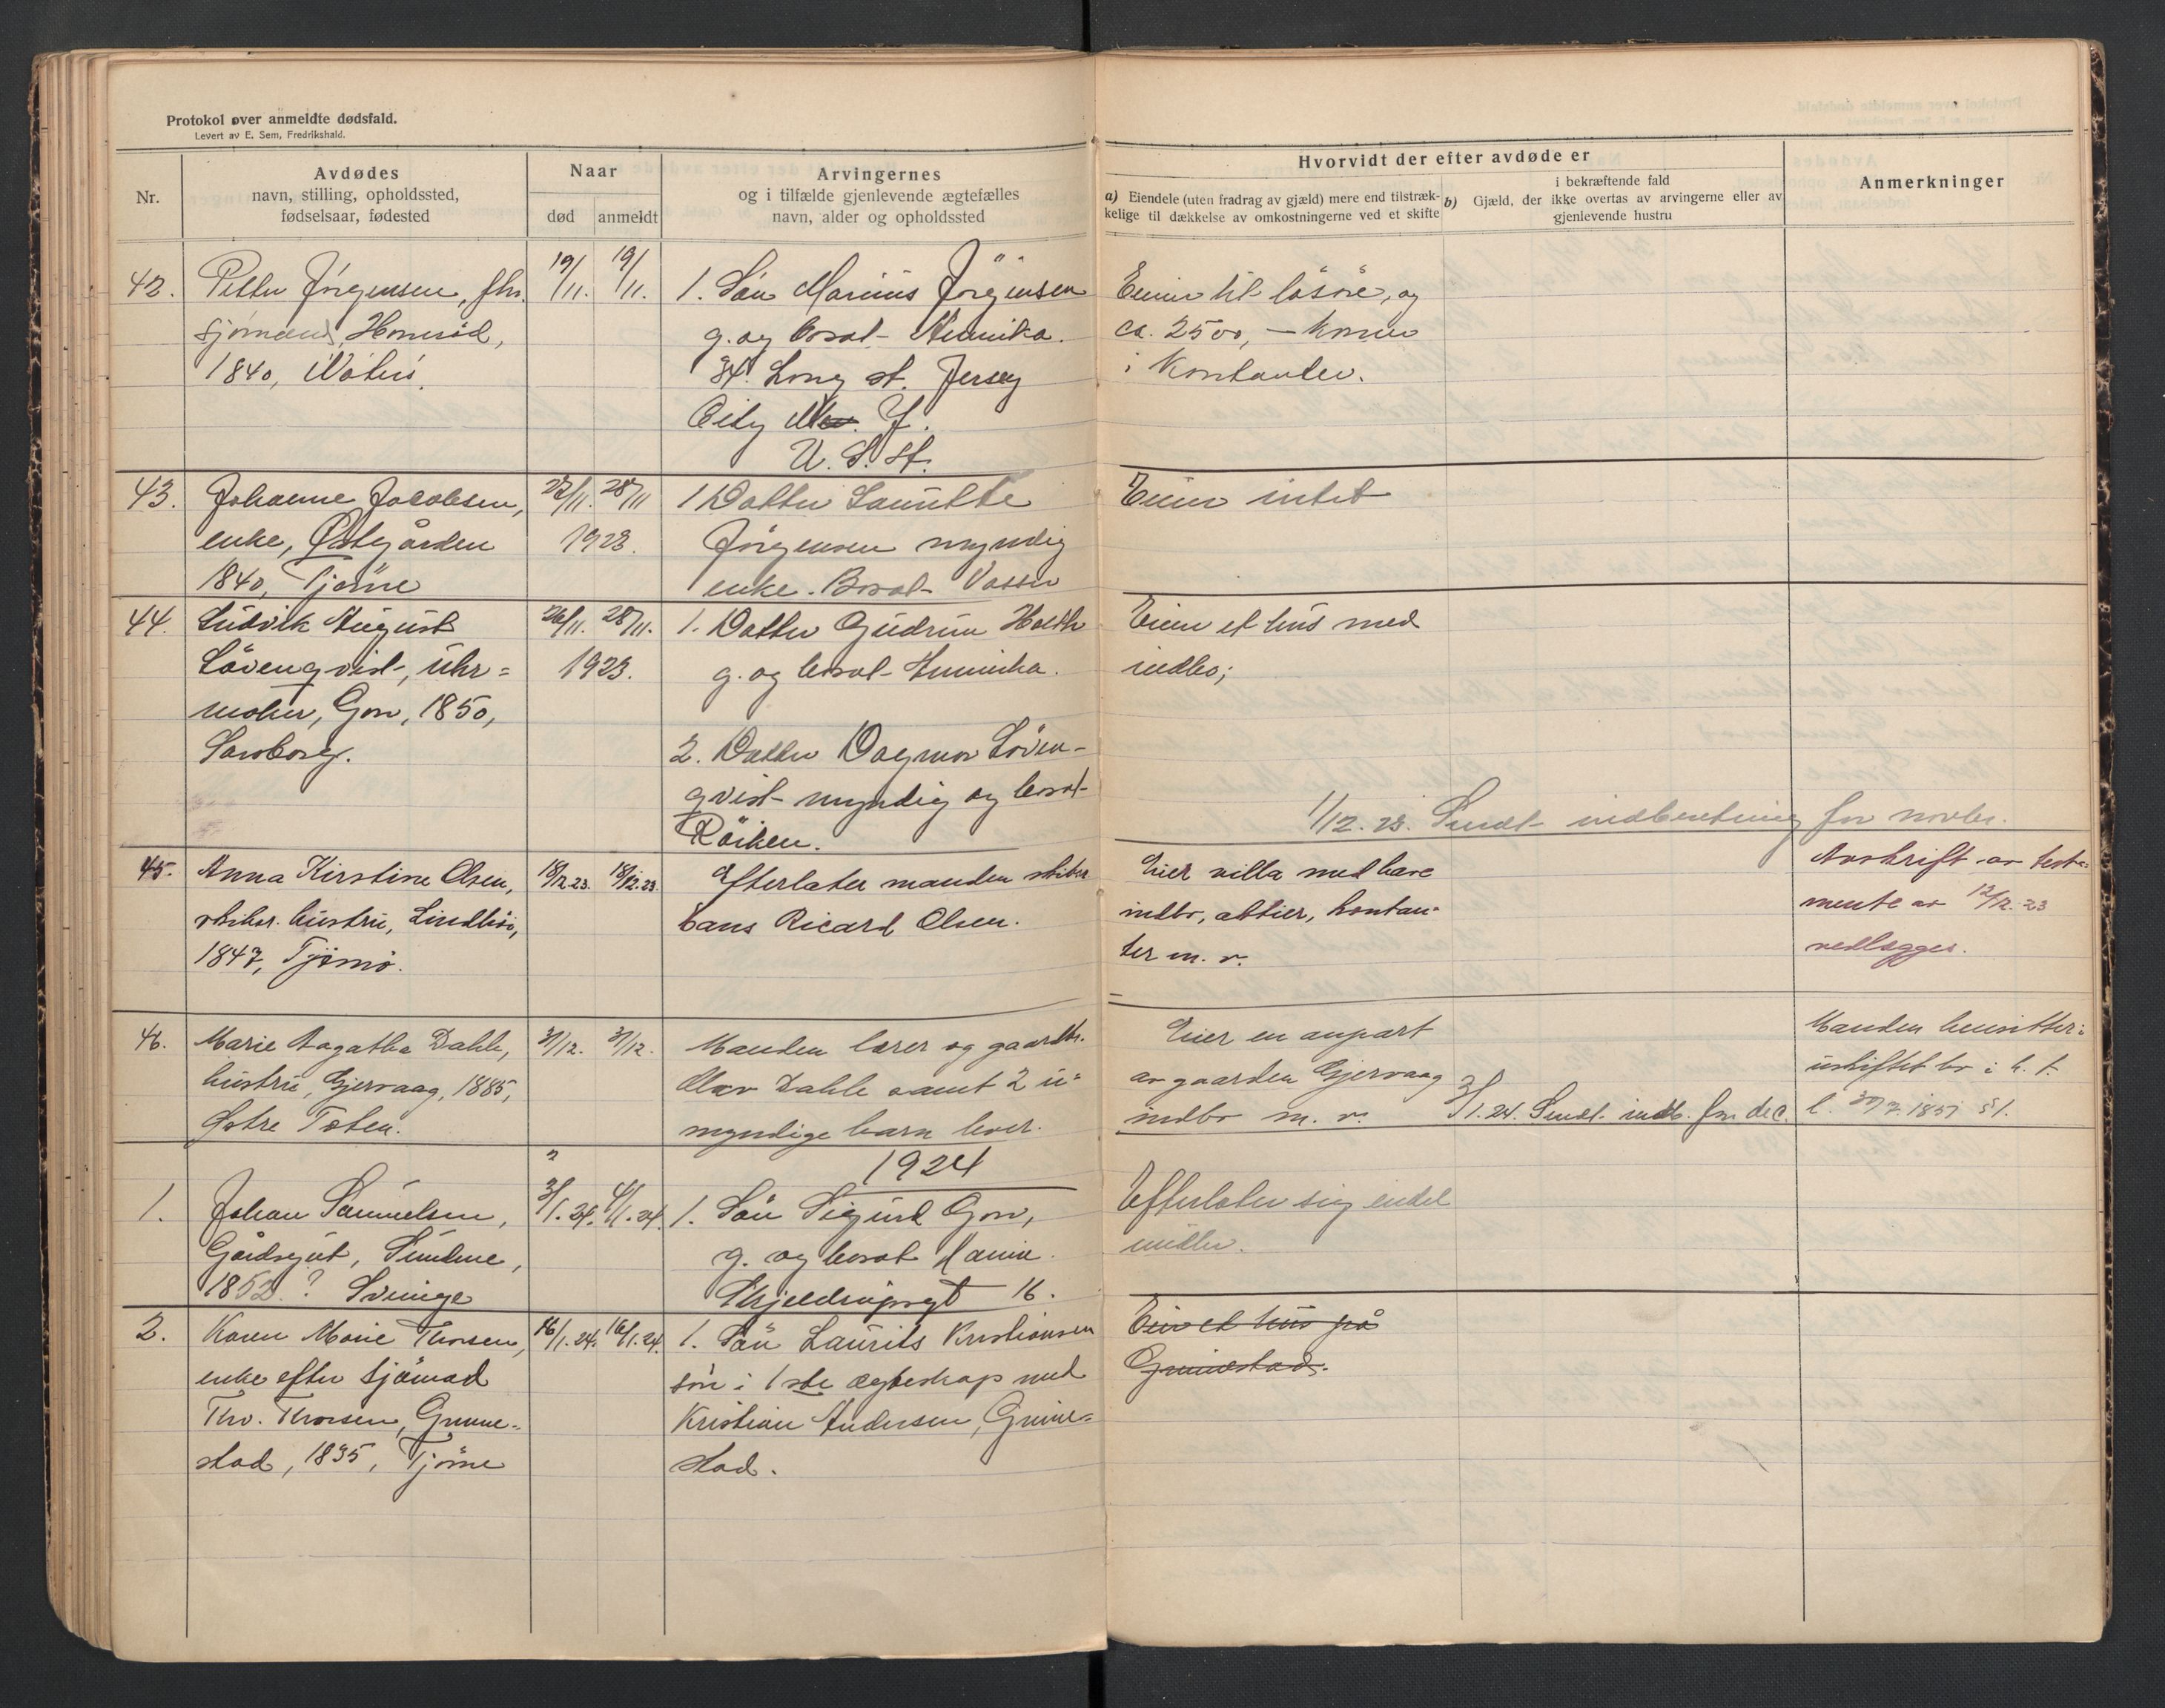 Protokol over anmeldte dødsfald.
Levert av E. Sem, Fredrikshald.
Nr.
Avdødes
navn, stilling, opholdssted,
fødselsaar, fødested
Naar
død
anmeldt
Arvingernes
og i tilfælde gjenlevende ægtefælles
navn, alder og opholdssted
Hvorvidt der efter avdøde er
a) Eiendele (uten fradrag av gjæld) mere end tilstræk-
kelige til dækkelse av omkostningerne ved et skifte
i bekræftende fald
b) Gjæld, der ikke overtas av arvingerne eller av
gjenlevende hustru
Anmerkninger
42.
Petter Jörgensen, fhv.
sjömand,
1840,
19/11.
19/11.
1. Sön Marinus Jörgensen
g. og bosat Amerika.
34 Long st. Jersey
City J.
U. S. A.
Eier litt lösöre, og
ca. 2500, – kroner
i kontanter.
43.
Johanne Jacobsen,
enke, Østegården
1840, Tjöme
27/11. 28/11
1923.
1 Datter Laurette
Jörgensen myndig
enke. Bosat Vasser
Eier intet
44.
Ludvik August
Lövenqvist, uhr=
maker, Gon, 1850,
Sarpborg.
26/11. 28/11.
1923.
1. Datter Gudrun Holth
g. og bosat Amerika.
2. Datter Dagmar Löven-
qvist myndig og bosat
Röiken.
Eier et hus med
indbo;
1/12. 23. Sendt indberetning for novbr.
45.
Anna Kirstine Olsen,
skibsr. hustru,
1847, Tjömö.
18/12.23.
18/12.23.
Efterlater manden skibsr
Hans Ricard Olsen.
Eier villa med have
indbo, aktier, kontan-
ter m. v.
Avskrift av testa-
mente av 12/12.23
vedlægges.
46.
Marie Aagatha Dahle,
hustru, Gjervaag, 1885,
Østre Toten.
31/12.
31/12.
Manden lærer og gaardbr.
Olav Dahle samt 2 u-
myndige barn lever.
Eier en anpart
av gaarden Gjervaag
indbo m. v.
3/1.24. Sendt indb. for dec.
Manden hensitter i
uskiftet bo i h. t.
l. 30/7 1851 § 1.
1924
1.
Johan Samuelsen,
Gårdsgut, Sundene,
1852.? Svinige
3/1.24.
4/1.24.
1. Sön Sigurd Gon,
g. og bosat
16.
Efterlater sig endel
midler.
2.
Karen Marie Thorsen,
enke efter sjömad
Tho. Thorsen, Grime-
stad, 1835, Tjöme
16/1.24.
16/1.24.
1. Sön Laurits Kristiansen
sön i 1ste ægteskap med
Kristian Andersen, Grime-
stad.
Eier et hus på
Grimestad.